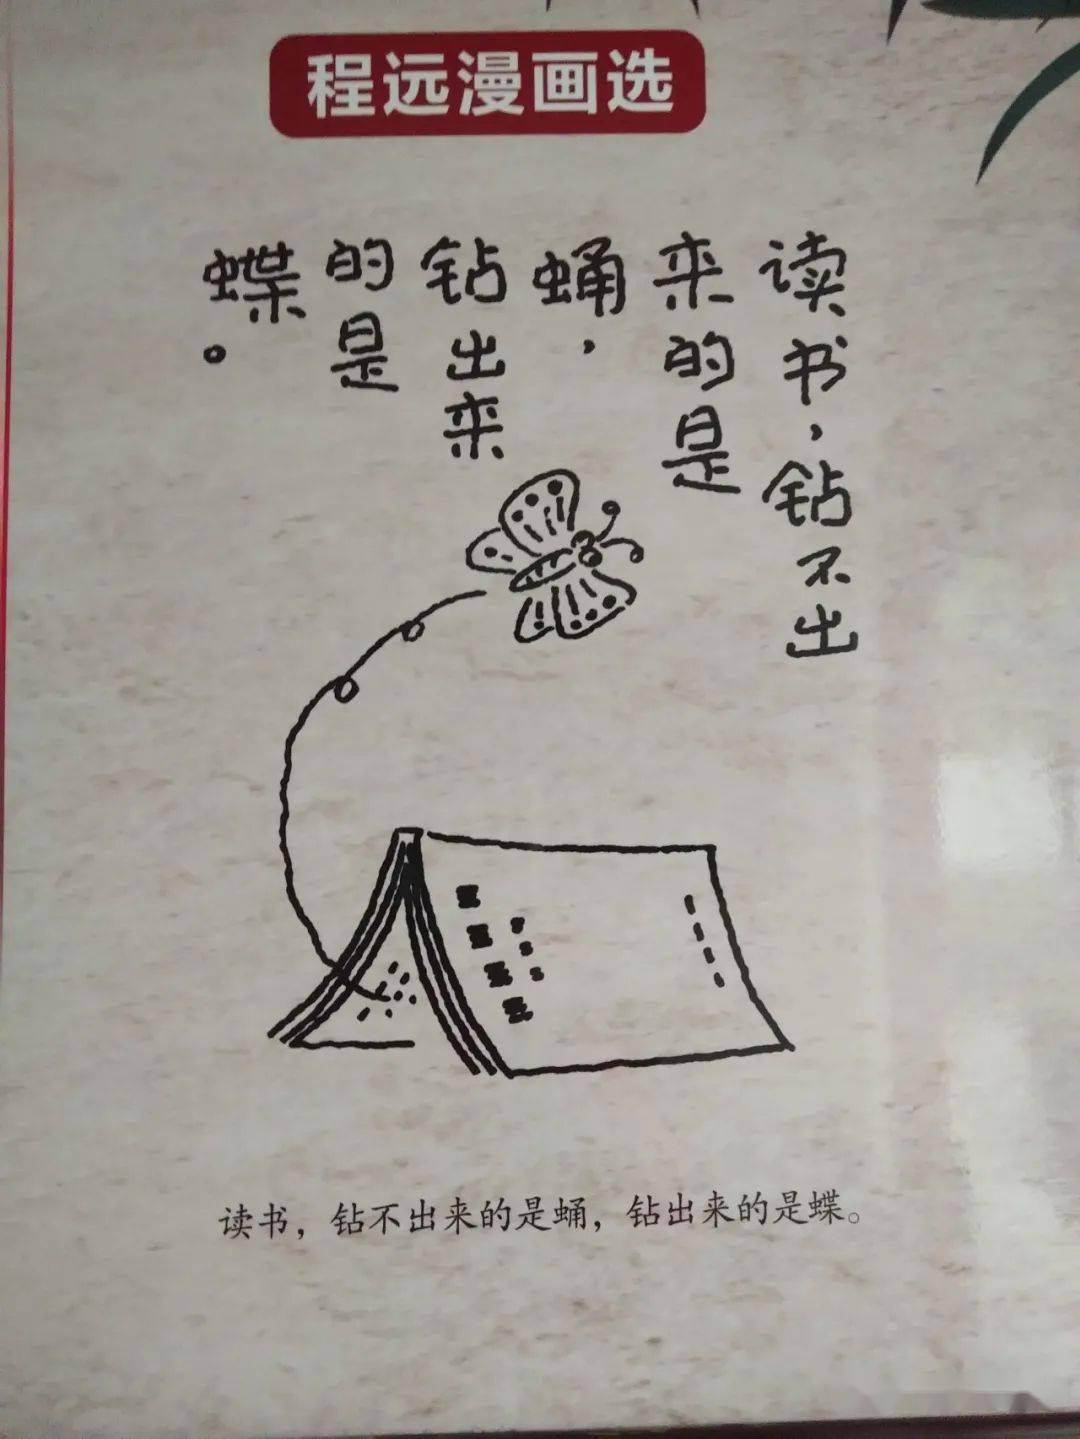 程远漫画选
读书，钻不出
来的是
蛹，
钻出来
的是
蝶。
读书，钻不出来的是蛹，钻出来的是蝶。